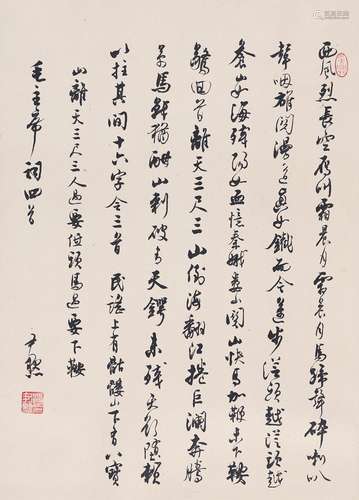 西風烈長空雁叫霜晨月霜晨月馬蹄聲碎喇叭
聲咽雄關漫道真如鐵而今邁步從頭越從頭越
蒼山如海殘陽如血憶秦娥婁山關山快馬加鞭未下鞍
驚回首離天三尺三山倒海翻江捲巨瀾奔騰
萬馬戰猶酣山刺破青天鍔未殘天欲墮賴
以拄其間十六字令三首民謠上有骷髏山下有八寶
山離天三尺三人過要低頭馬過要下鞍
毛主席詞四首
尹默